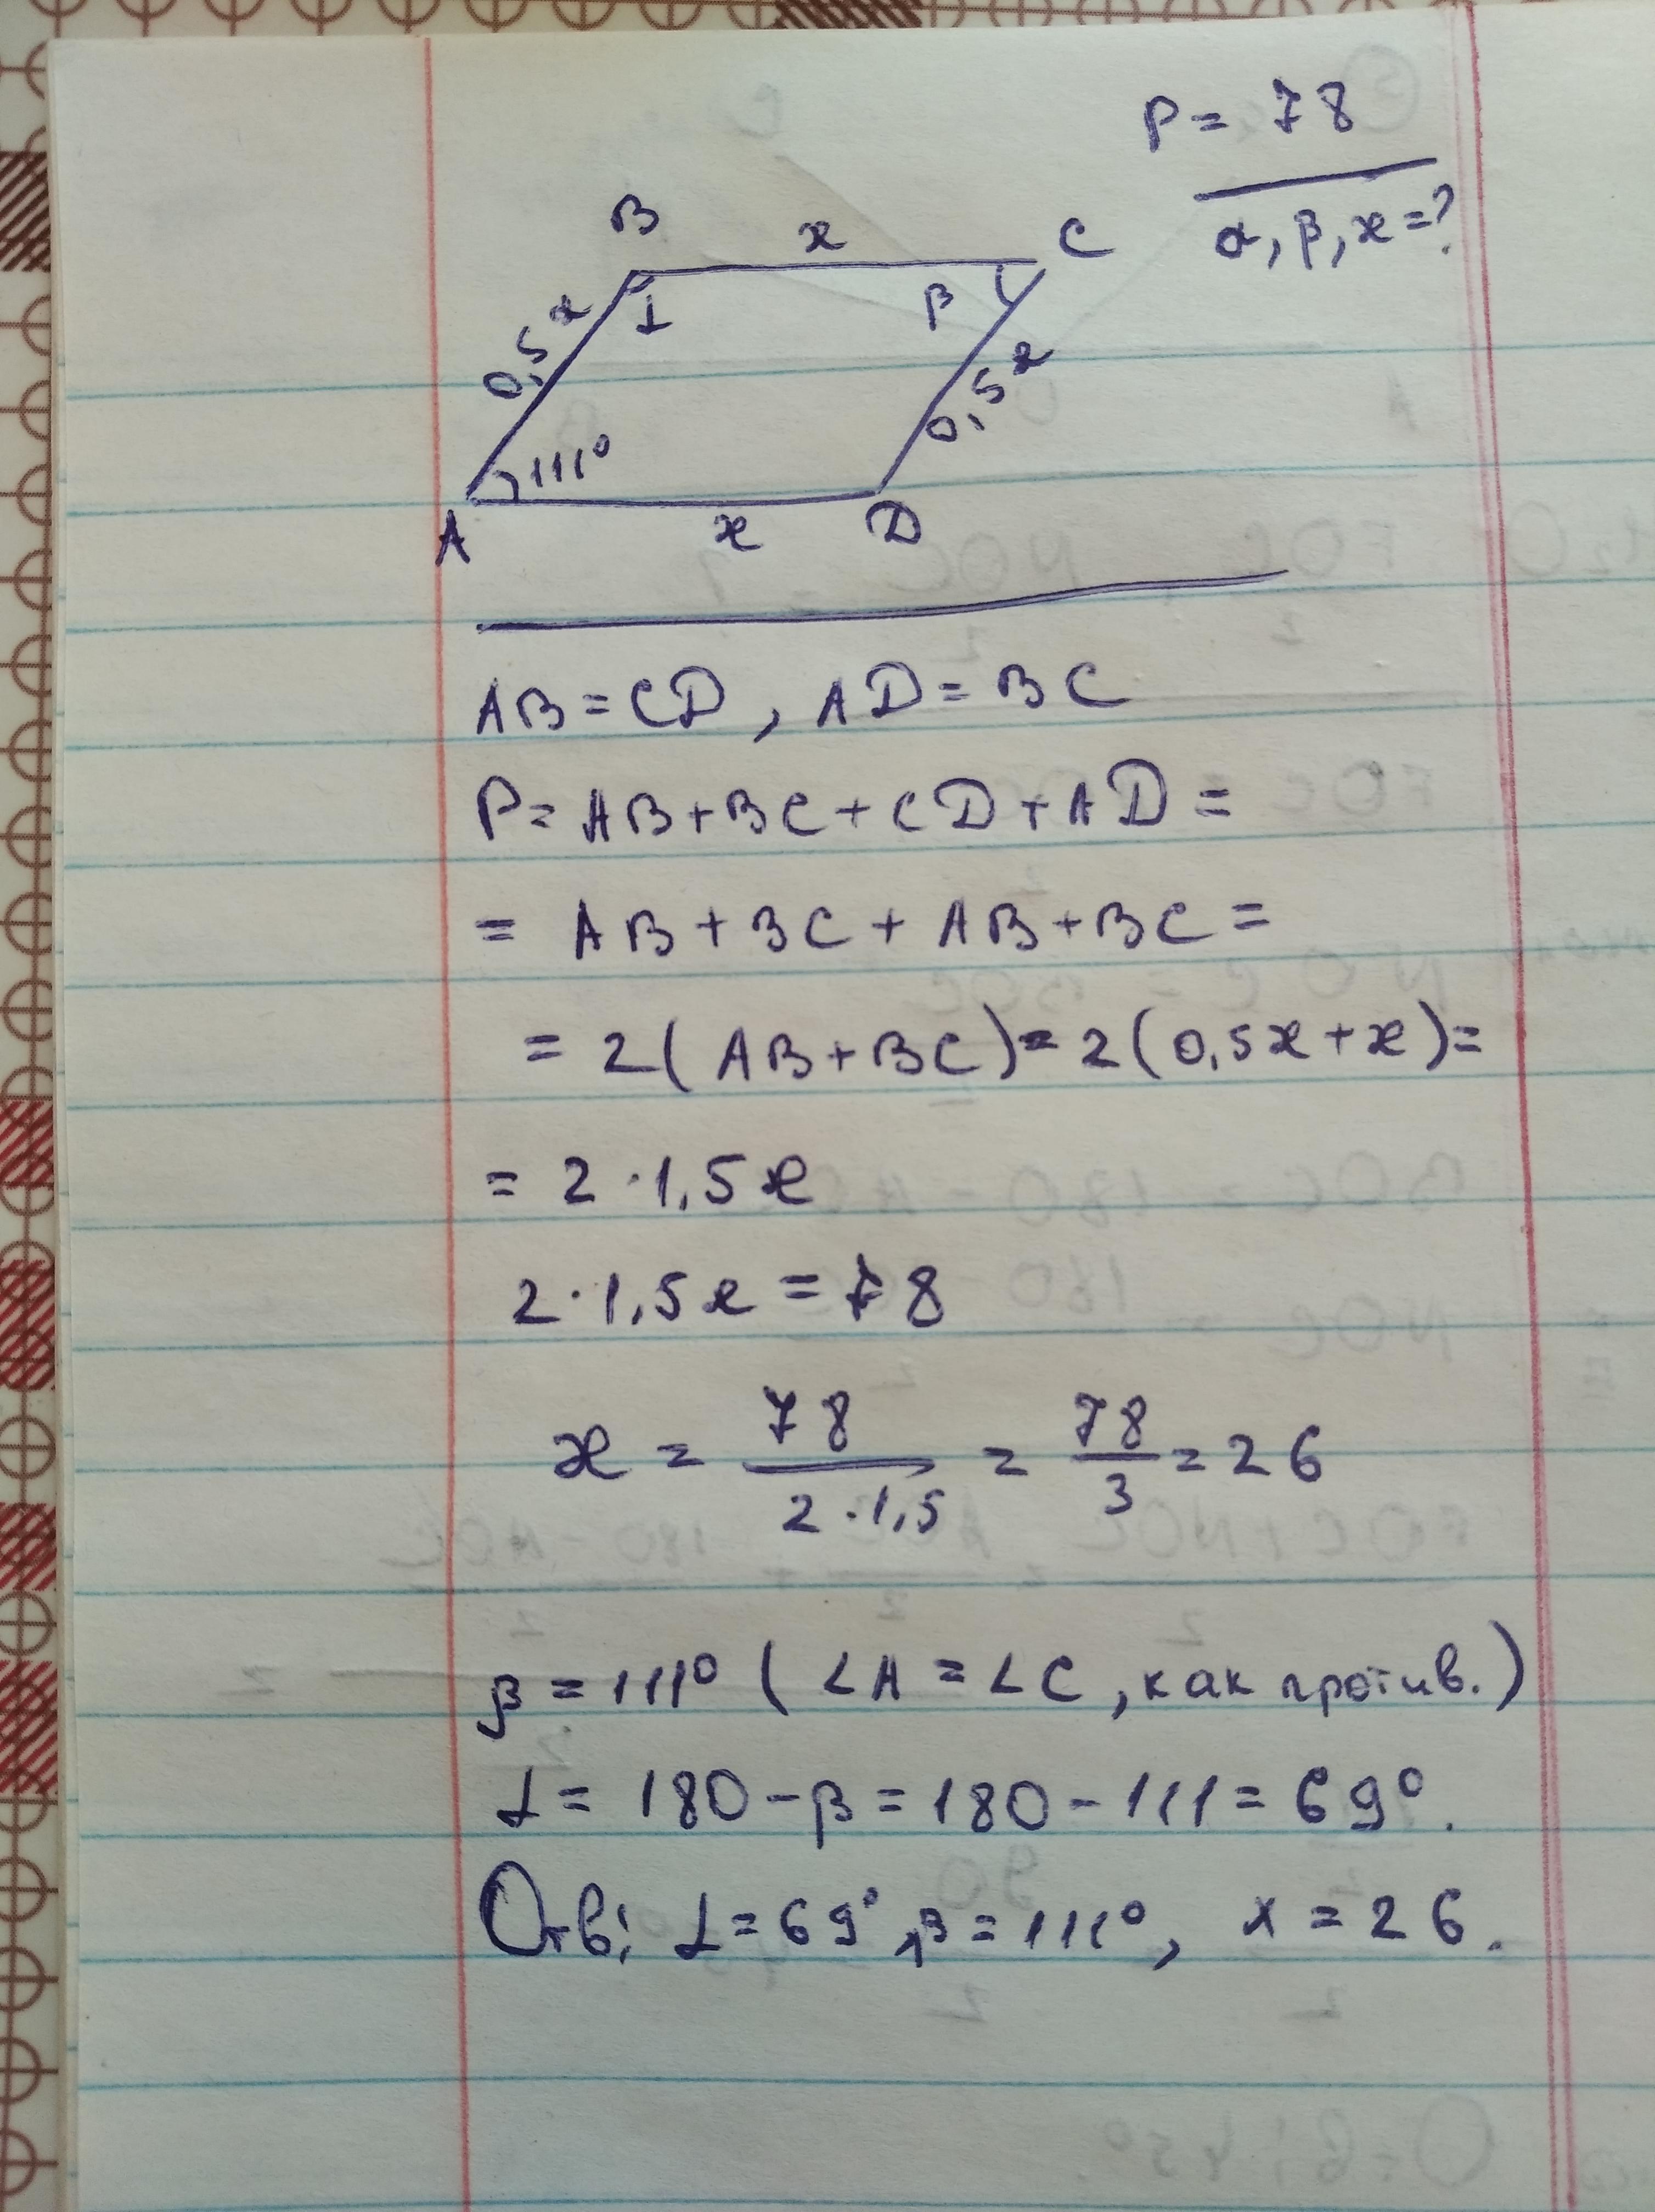 P = 78
α, β, x = ?
B x C
0,5x α β
0,5x
111°
A x D
AB = CD, AD = BC
P = AB + BC + CD + AD =
= AB + BC + AB + BC =
= 2(AB + BC) = 2(0,5x + x) =
= 2 · 1,5x
2 · 1,5x = 78
x = 78 / 2 · 1,5 = 78 / 3 = 26
β = 111° (∠A = ∠C, как против.)
α = 180 - β = 180 - 111 = 69°.
Отв: α = 69°, β = 111°, x = 26.